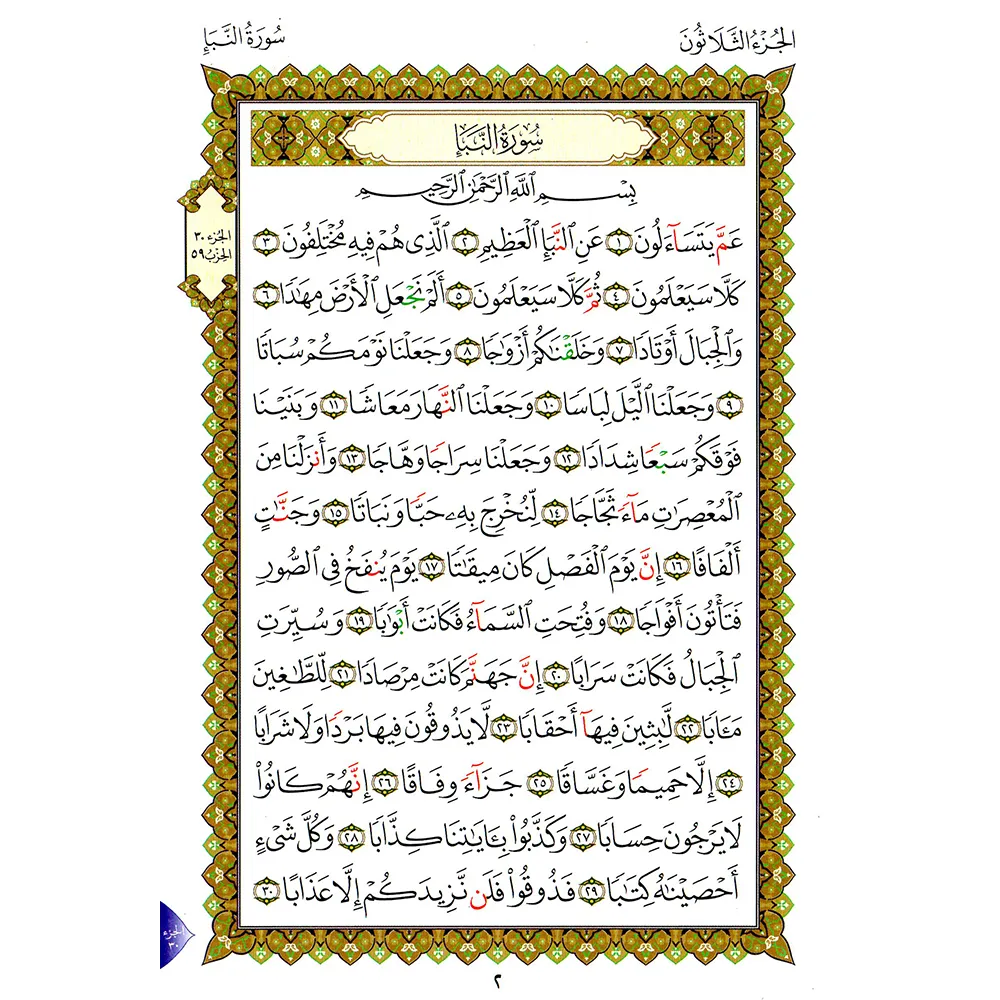 الجُزْءُ الثَّلَاثُونَ
سُورَةُ النَّبَإِ
سُورَةُ النَّبَإِ
بِسْمِ ٱللَّهِ ٱلرَّحْمَٰنِ ٱلرَّحِيمِ
الجُزء ٣٠
الحِزب ٥٩
عَمَّ يَتَسَآءَلُونَ ١ عَنِ ٱلنَّبَإِ ٱلْعَظِيمِ ٢ ٱلَّذِى هُمْ فِيهِ مُخْتَلِفُونَ ٣
كَلَّا سَيَعْلَمُونَ ٤ ثُمَّ كَلَّا سَيَعْلَمُونَ ٥ أَلَمْ نَجْعَلِ ٱلْأَرْضَ مِهَٰدًا ٦
وَٱلْجِبَالَ أَوْتَادًا ٧ وَخَلَقْنَٰكُمْ أَزْوَٰجًا ٨ وَجَعَلْنَا نَوْمَكُمْ سُبَاتًا
٩ وَجَعَلْنَا ٱلَّيْلَ لِبَاسًا ١٠ وَجَعَلْنَا ٱلنَّهَارَ مَعَاشًا ١١ وَبَنَيْنَا
فَوْقَكُمْ سَبْعًا شِدَادًا ١٢ وَجَعَلْنَا سِرَاجًا وَهَّاجًا ١٣ وَأَنزَلْنَا مِنَ
ٱلْمُعْصِرَٰتِ مَآءً ثَجَّاجًا ١٤ لِّنُخْرِجَ بِهِۦ حَبًّا وَنَبَاتًا ١٥ وَجَنَّٰتٍ
أَلْفَافًا ١٦ إِنَّ يَوْمَ ٱلْفَصْلِ كَانَ مِيقَٰتًا ١٧ يَوْمَ يُنفَخُ فِى ٱلصُّورِ
فَتَأْتُونَ أَفْوَاجًا ١٨ وَفُتِحَتِ ٱلسَّمَآءُ فَكَانَتْ أَبْوَٰبًا ١٩ وَسُيِّرَتِ
ٱلْجِبَالُ فَكَانَتْ سَرَابًا ٢٠ إِنَّ جَهَنَّمَ كَانَتْ مِرْصَادًا ٢١ لِّلطَّٰغِينَ
مَـَٔابًا ٢٢ لَّٰبِثِينَ فِيهَآ أَحْقَابًا ٢٣ لَّا يَذُوقُونَ فِيهَا بَرْدًا وَلَا شَرَابًا
٢٤ إِلَّا حَمِيمًا وَغَسَّاقًا ٢٥ جَزَآءً وِفَاقًا ٢٦ إِنَّهُمْ كَانُوا۟
لَا يَرْجُونَ حِسَابًا ٢٧ وَكَذَّبُوا۟ بِـَٔايَٰتِنَا كِذَّابًا ٢٨ وَكُلَّ شَىْءٍ
أَحْصَيْنَٰهُ كِتَٰبًا ٢٩ فَذُوقُوا۟ فَلَن نَّزِيدَكُمْ إِلَّا عَذَابًا ٣٠
الجزء
٣٠
٢